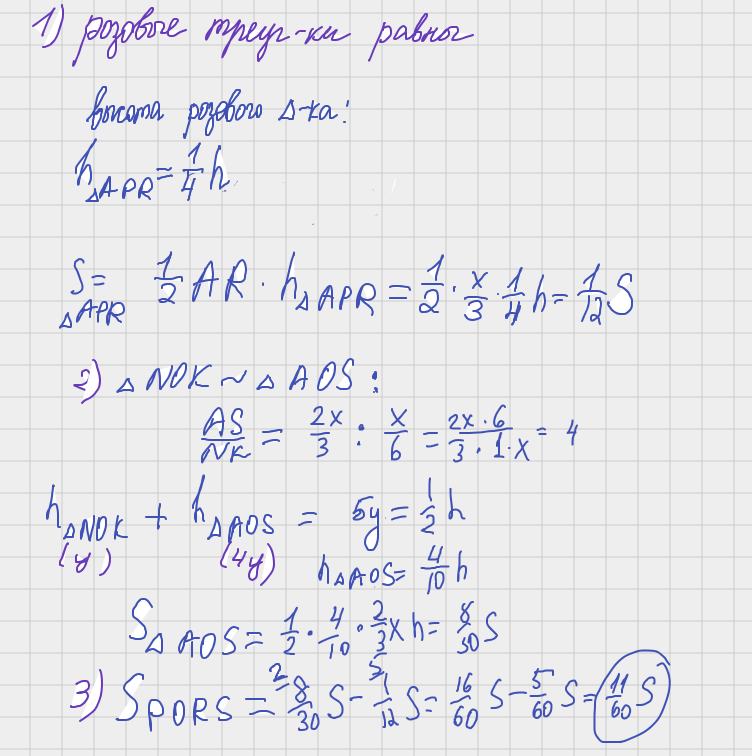 1) розовые треуг-ки равны
высота розового Δ-ка:
h ΔAPR = 1/4 h
S ΔAPR = 1/2 AR · h ΔAPR = 1/2 · x/3 · 1/4 h = 1/12 S
2) Δ NOK ~ Δ AOS :
AS/NK = 2x/3 : x/6 = 2x · 6/3 · 1 · x = 4
h ΔNOK + h ΔAOS = 5y = 1/2 h
(y) (4y) h ΔAOS = 4/10 h
S ΔAOS = 1/2 · 4/10 · 2/3 x h = 8/30 S
3) S PORS = 2 8/30 S - 5 1/12 S = 16/60 S - 5/60 S = 11/60 S